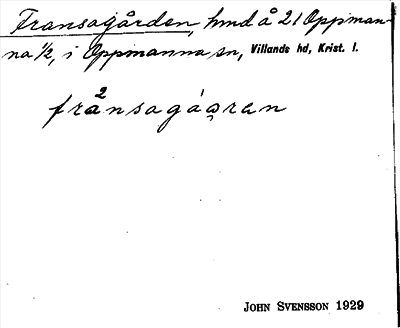 Fransagården, hmd å 21 Oppman-
na ½, i Oppmanna sn, Villands hd, Krist. l.
2
frånsagáǫren
JOHN SVENSSON 1929